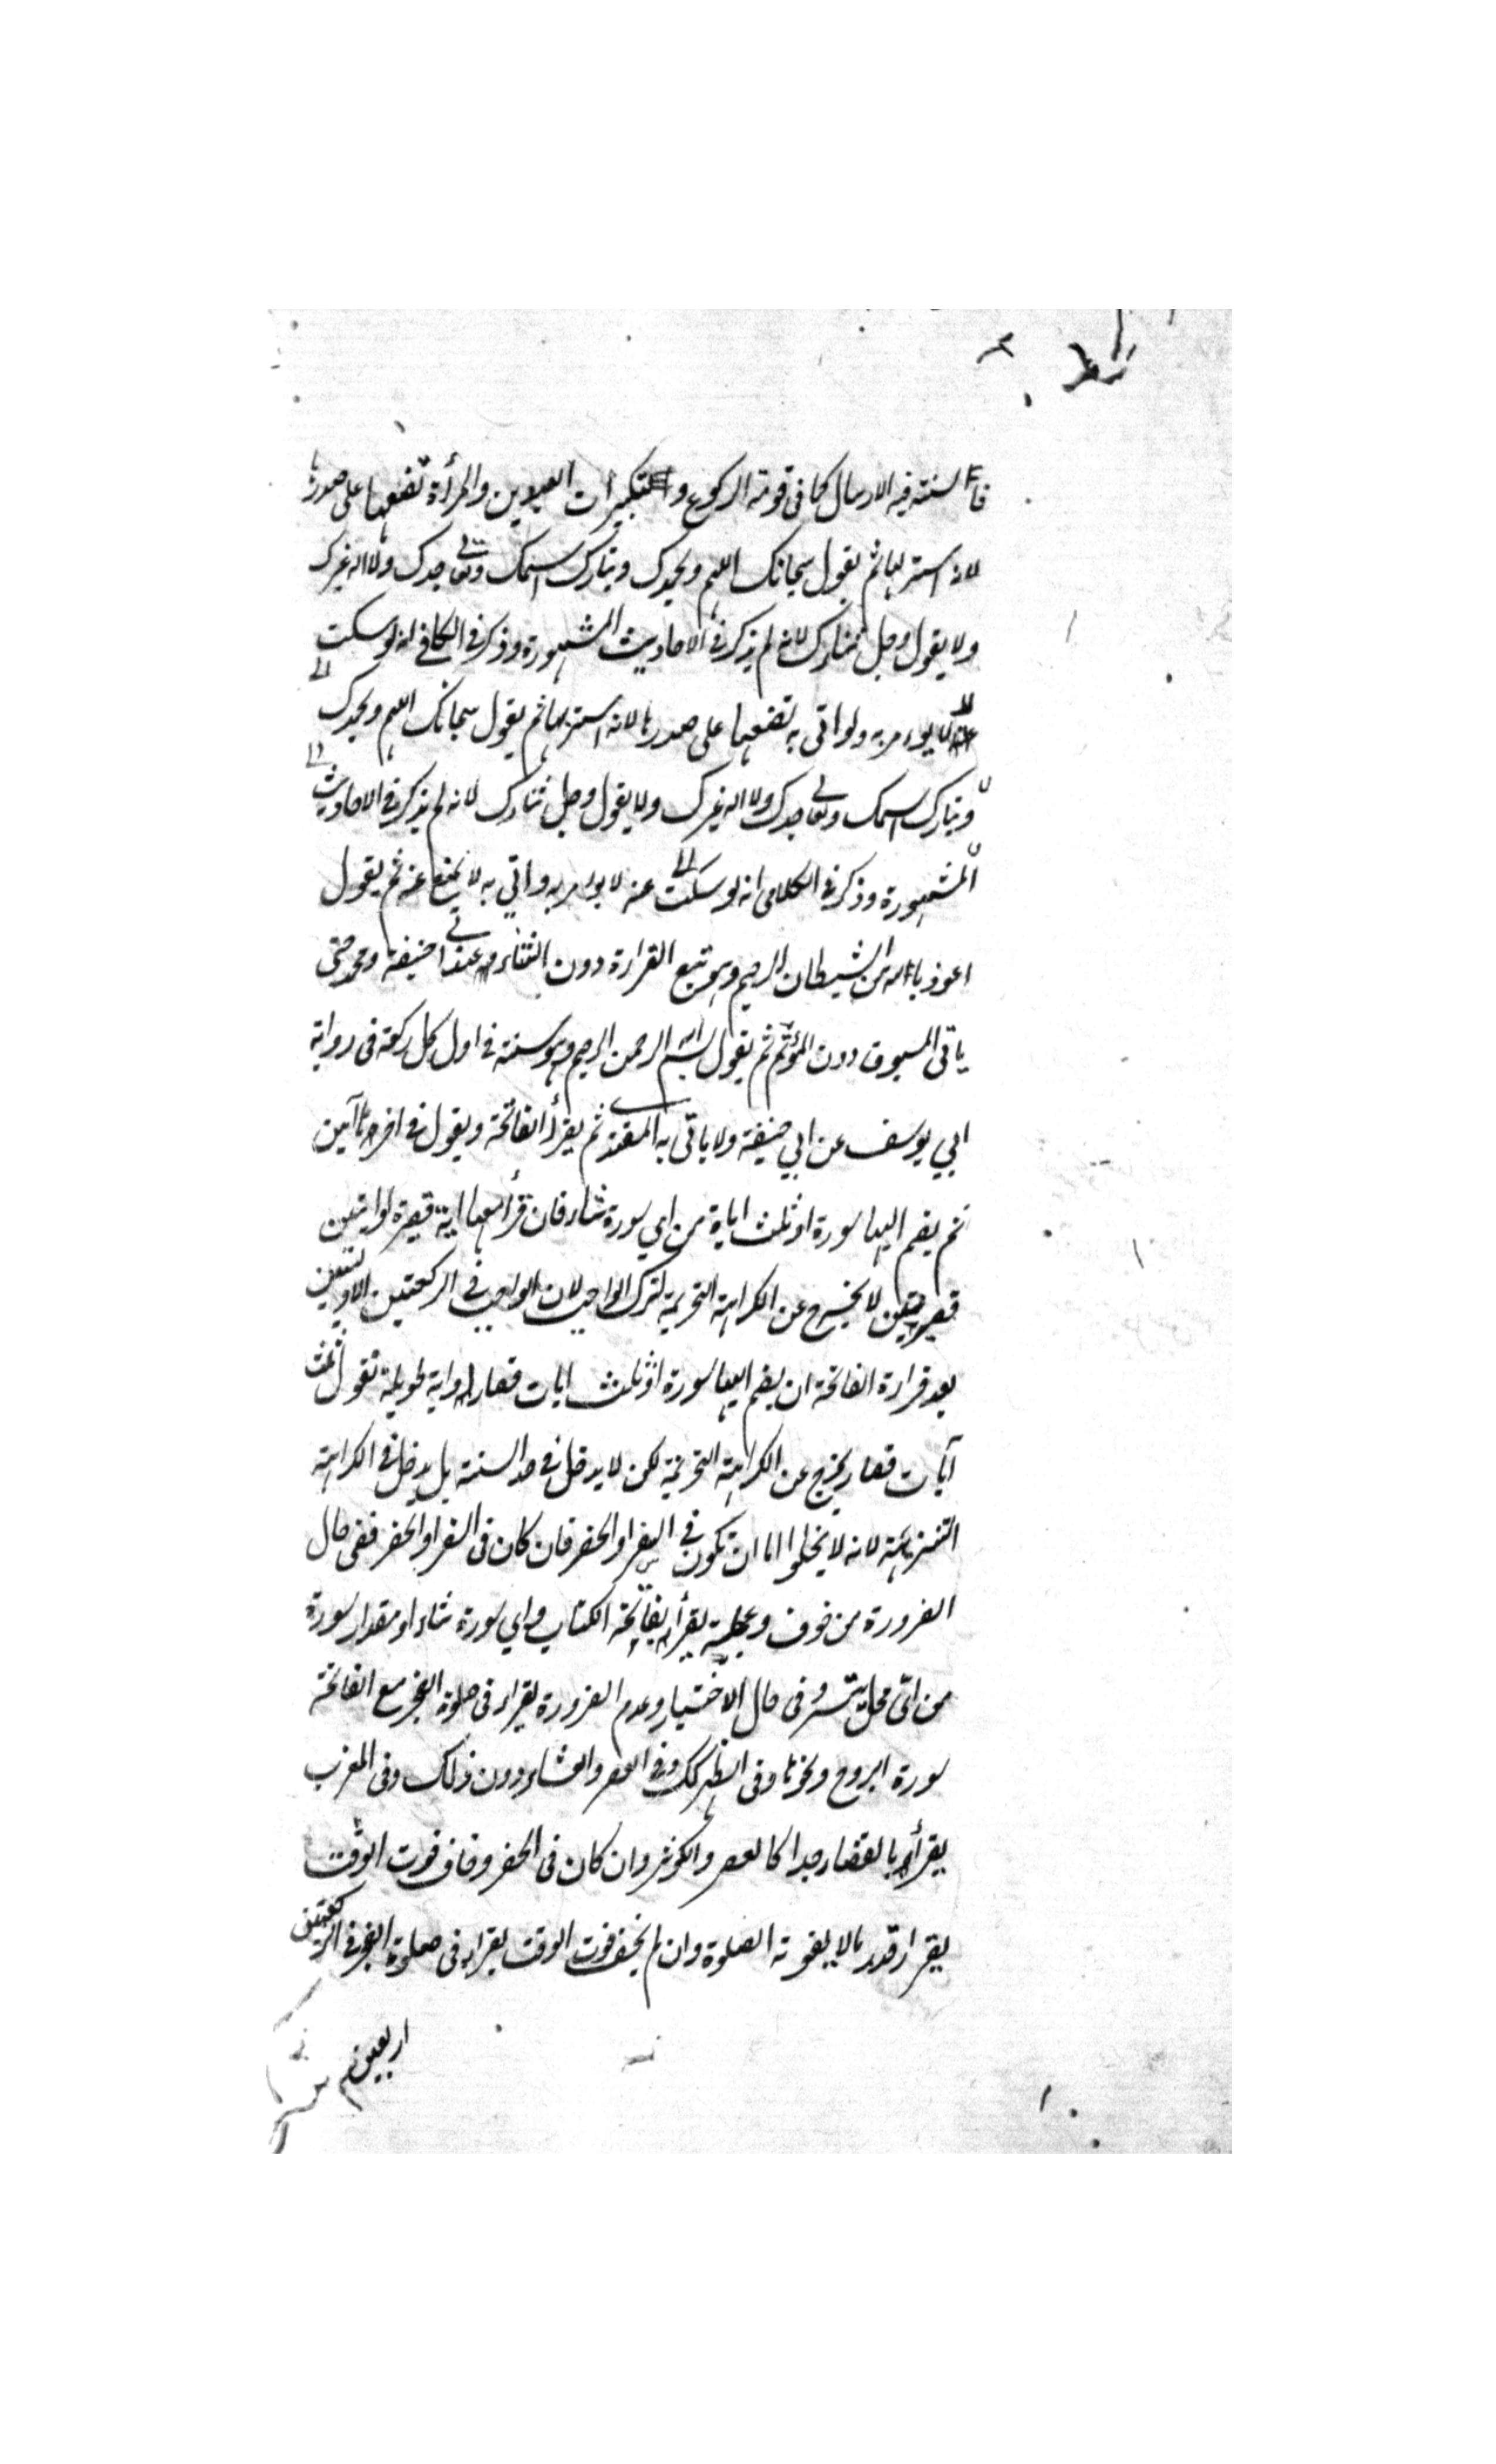 فالسنة فيه الارسال كما فى قومة الركوع وتكبيرات العيدين والمرأة تضعهما على صدرها
لانه استر لها ثم يقول سبحانك اللهم وبحمدك وتبارك اسمك وتعالى جدك ولا اله غيرك
ولا يقول وجل ثناؤك لانه لم يذكر فى الاحاديث المشهورة وذكر فى الكافى انه لو سكت
عنه لا يومر به ولو اتى به تضعهما على صدرها لانه استر لها ثم يقول سبحانك اللهم وبحمدك
وتبارك اسمك وتعالى جدك ولا اله غيرك ولا يقول وجل ثناؤك لانه لم يذكر فى الاحاديث
المشهورة وذكر فى انه لو سكت عنه لا يومر به واتي به لا يمنع عنه ثم يقول
اعوذ بالله من الشيطان الرجيم وهو تتبع القراءة دون الثناء عند ابى حنيفة ومحمد حتى
ياتى المسبوق دون المؤتم ثم يقول بسم الله الرحمن الرحيم وهو سنة فى اول كل ركعة فى رواية
ابي يوسف عن ابي حنيفة ولا ياتى به المقتدى ثم يقرأ الفاتحة ويقول فى اخرها آمين
ثم يضم اليها سورة او ثلث اياة من اي سورة شاء فان قرأ معها اية قصيرة او ايتين
قصيرتين لا يخرج عن الكراهة التحريمية لترك الواجب لان الواجب فى الركعتين الاوليين
بعد قراءة الفاتحة ان يضم اليها سورة او ثلث ايات قصار او اية طويلة تقول ثلث
آيات قصار يخرج عن الكراهة التحريمية لكن لا يدخل فى حد السنة بل يدخل فى الكراهة
التنزيهية لانه لا يخلوا اما ان تكون فى السفر او الحضر فان كان فى السفر او الحضر ففى حال
الضرورة من خوف وعجلة يقرأ بفاتحة الكتاب واي سورة شاء او مقدار سورة
من اىّ محل يتسر وفى حال الاختيار وعدم الضرورة يقراء فى صلوة الفجر مع الفاتحة
سورة البروج ونحوها وفى الظهر كك وفى العصر والعشاء دون ذلك وفى المغرب
يقرأ بالقصار جدا كالعصر والكوثر وان كان فى الحضر وخاف فوت الوقت
يقرا قدر ما لا يفوته الصلوة وان لم يخف فوت الوقت يقراء فى صلوة الفجر فى الركعتين
اربعين